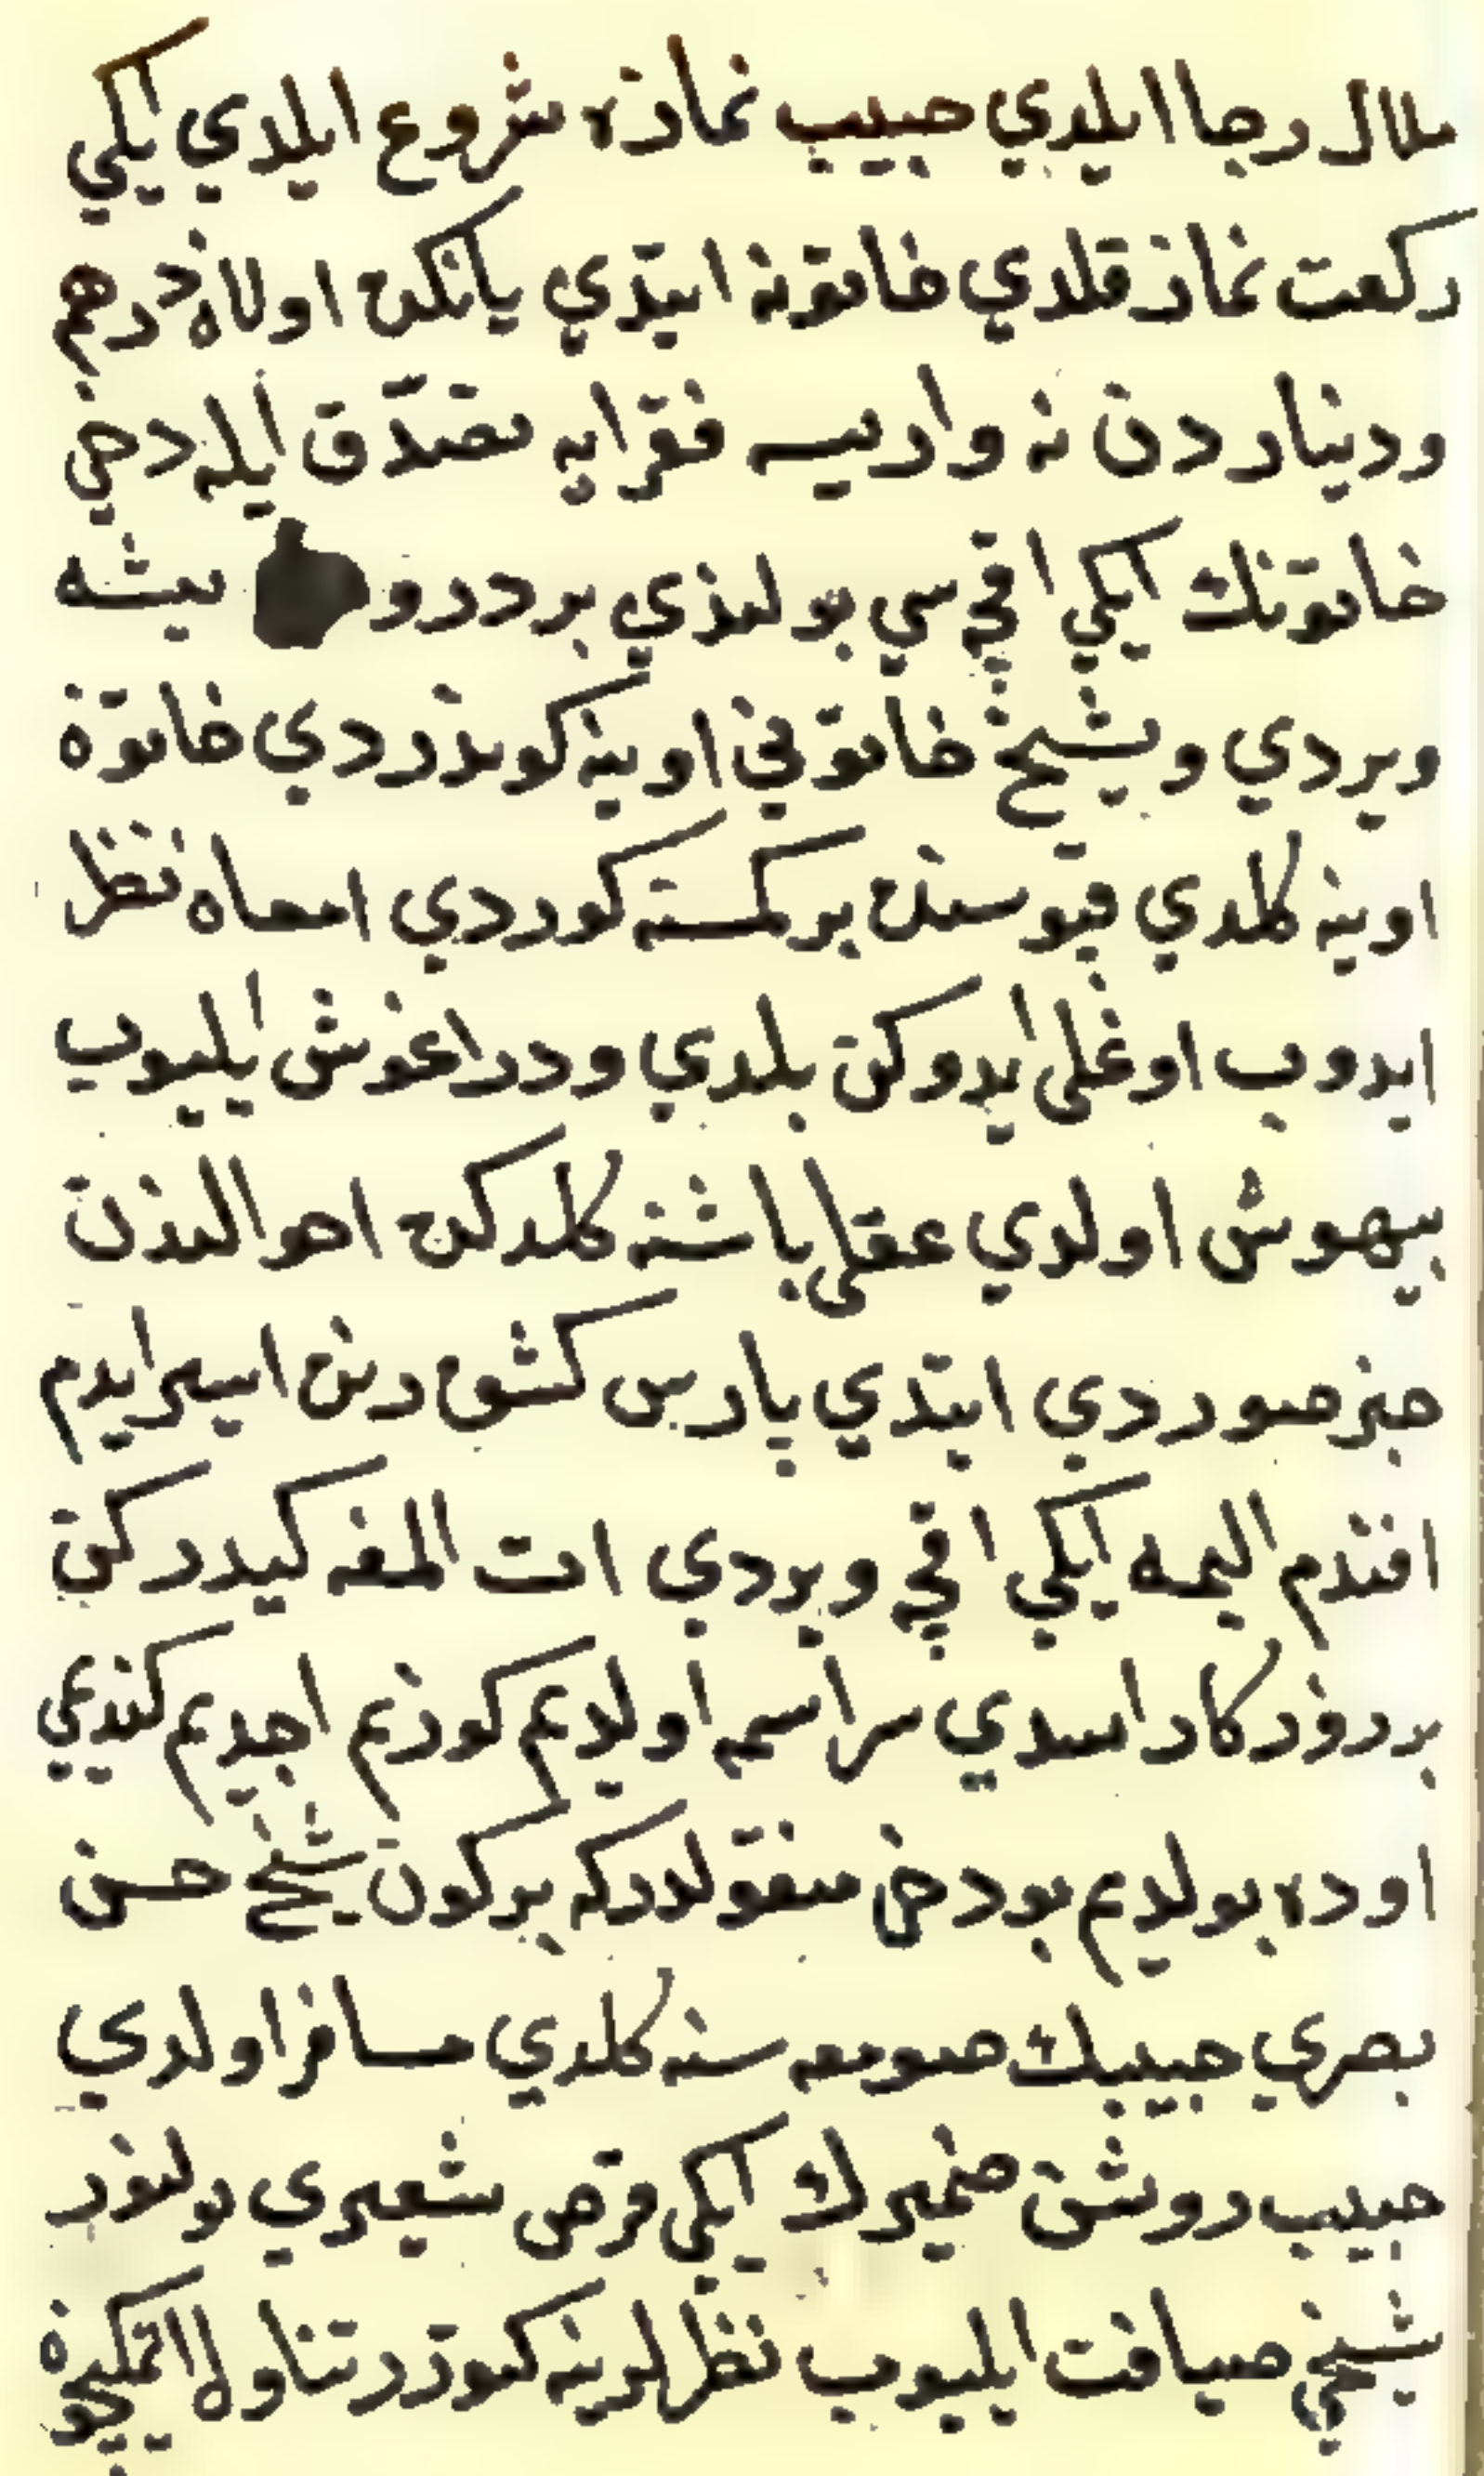 ملال رجا ايلدي حبيب نمازه شروع ايلدي ايكي
ركعت نماز قلدي خاتونه ايتدي يانكن اولان درهم
وديناردن نه واريسه فقرايه تصدق ايله دخي
خاتونك ايكي اقچه سي بولندي بر درو يشه
ويردي وشيخ خاتوني اوينه كوندردي خاتون
اوينه كلدي قپوسنده بر كمسنه كوردي امعان نظر
ايدوب اوغلي ايدوكن بلدي ودر اغوش ايليوب
بيهوش اولدي عقلي باشنه كلدكن احوالندن
خبر صوردي ايتدي پارس كشورنده اسير ايدم
افندم اليمه ايكي اقچه ويردي ات المغه كيدركن
بر روزكار اسدي سراسمه اولديم كوزم اچديم كنديمي
اوده بولديم بو دخي منقولدركه بر كون شيخ حسن
بصري حبيبك صومعه سنه كلدي مسافر اولدي
حبيب روشن ضميرك ايكي قرص شعيري بولنور
شيخي ضيافت ايليوب نظرلرينه كتورر تناول